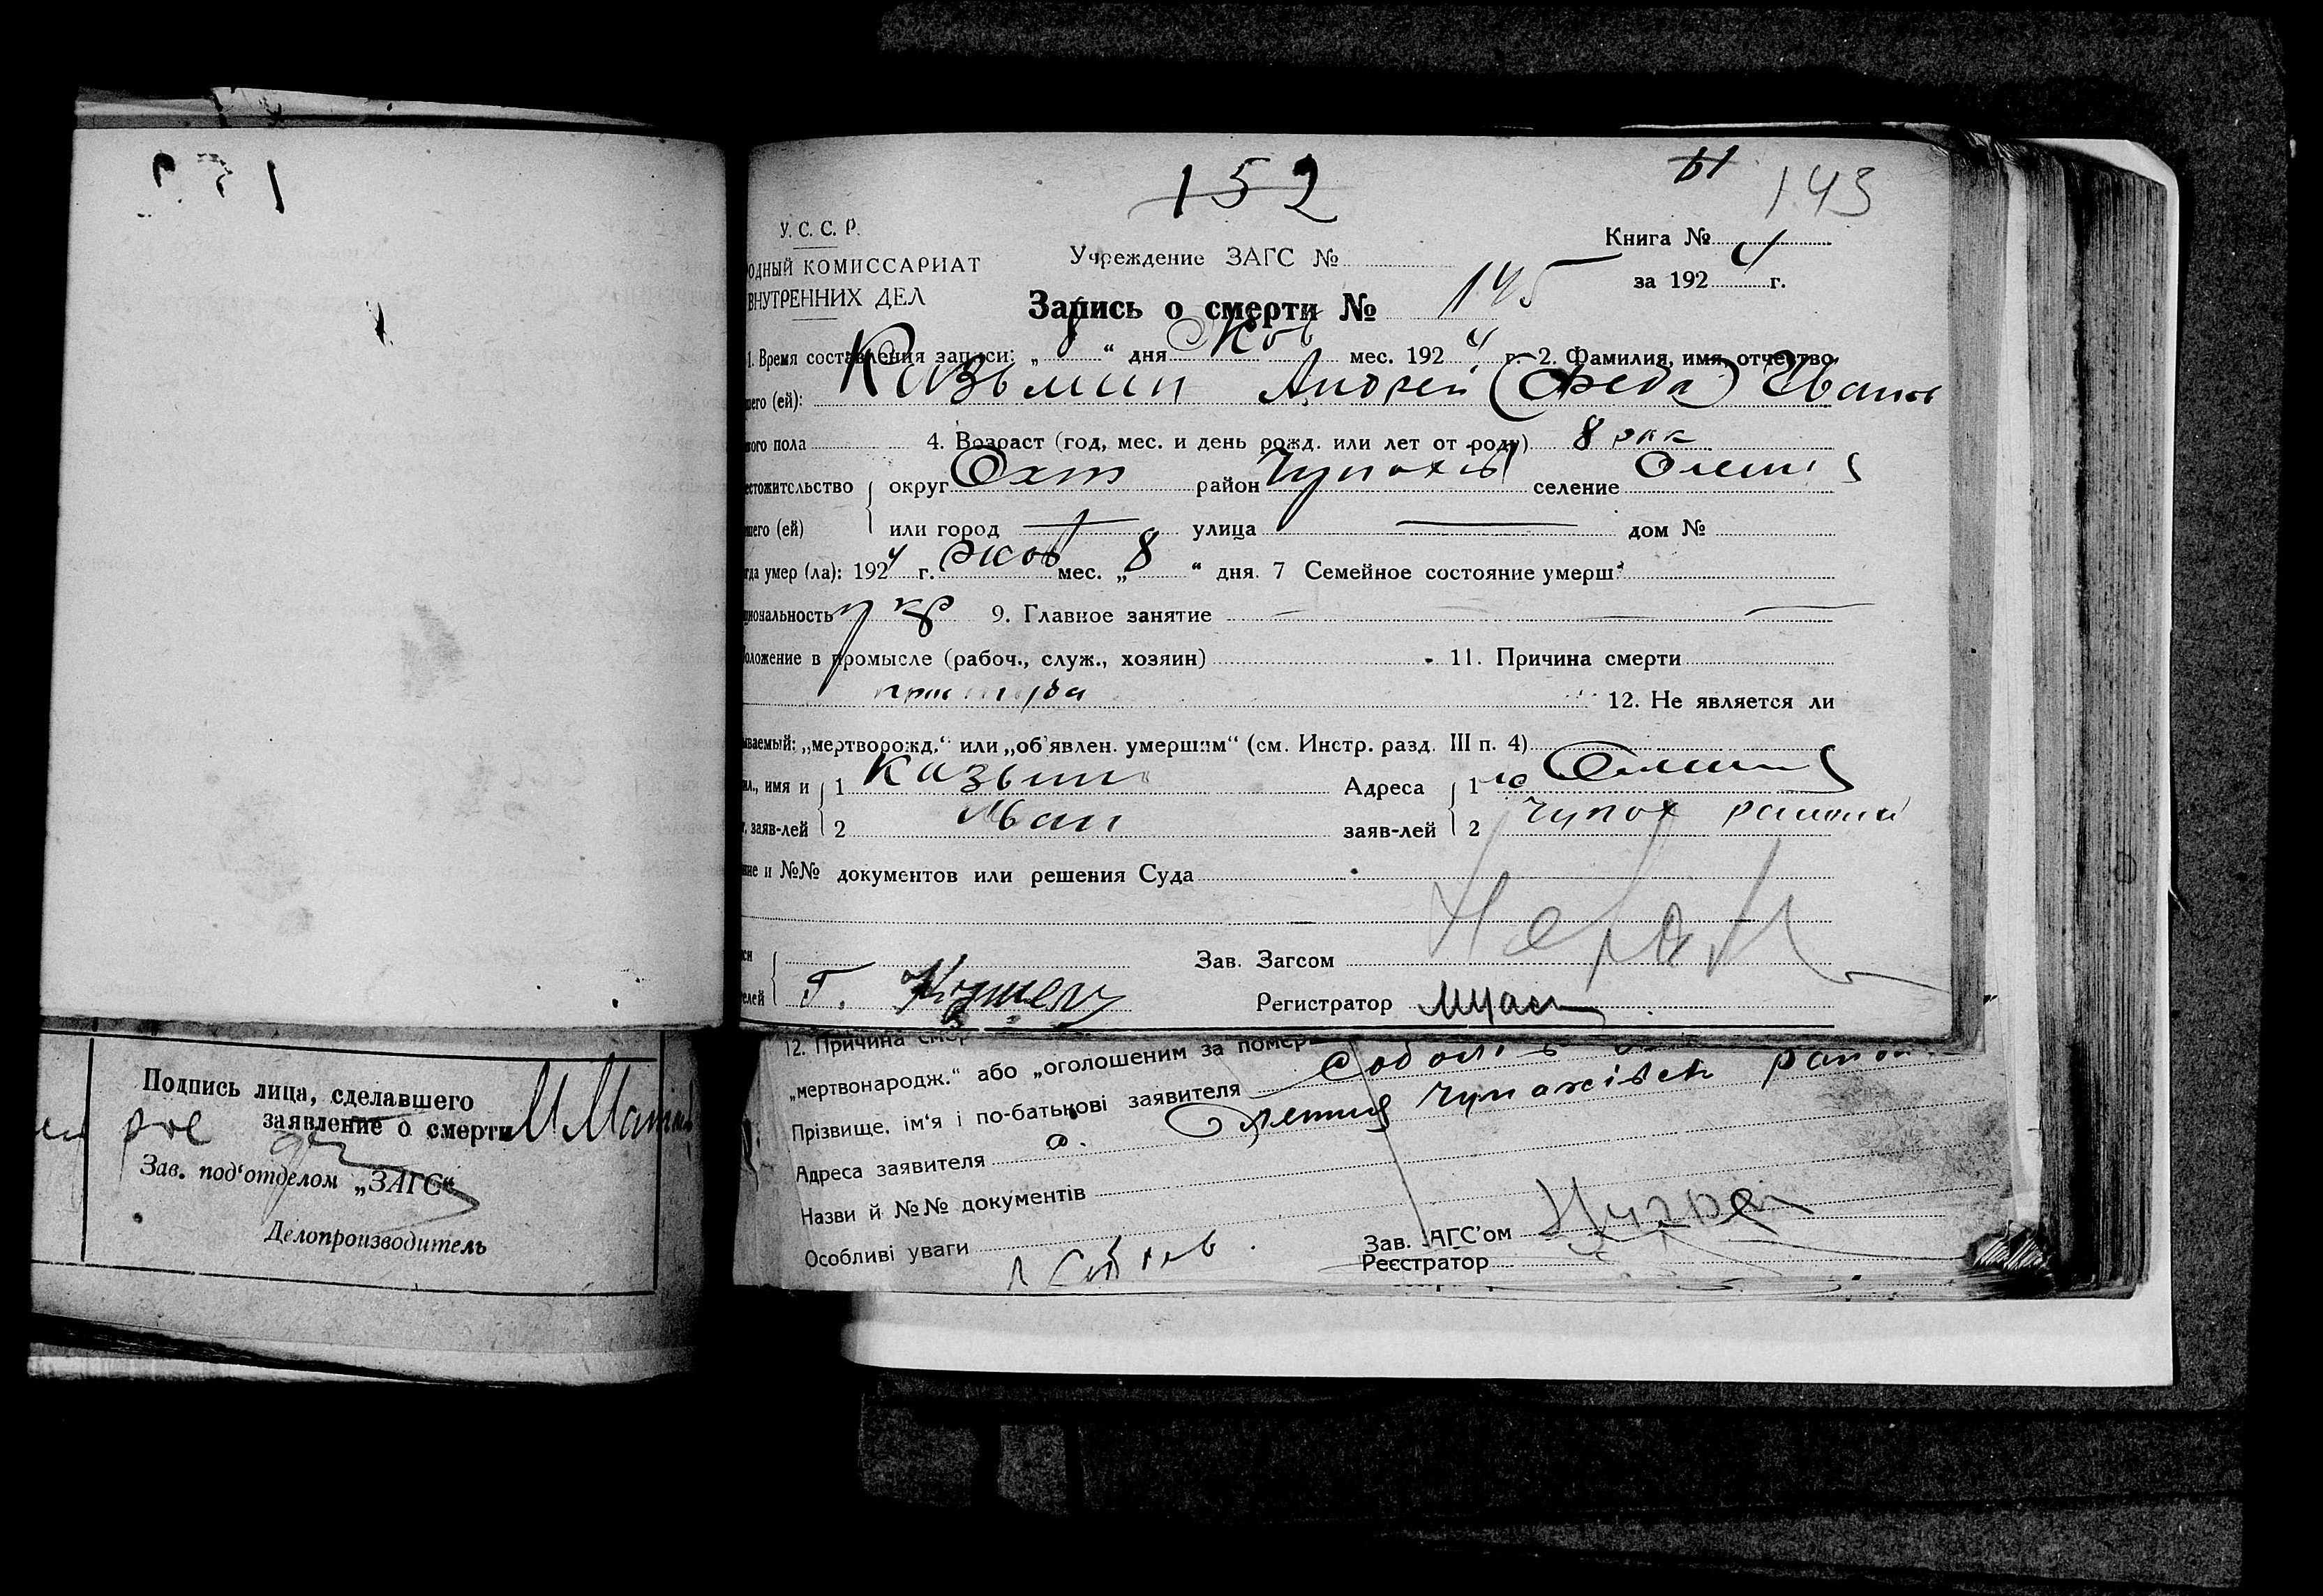 152
143
У. С. С. Р.
ОДНЫЙ КОМИССАРИАТ
ВНУТРЕННИХ ДЕЛ
Учреждение ЗАГС №
Книга №
за 192 4 г.
Запись о смерти № 145
1. Время составления записи: „ 8 “ дня Жов мес. 192 4 г. 2. Фамилия, имя, отчество
шего (ей): Казьмин Андрей Иванов
ого пола 4. Возраст (год, мес. и день рожд. или лет от роду) 8 рок
естожительство округ Охт район Чупахів селение Олешня
шего (ей) или город улица дом №
гда умер (ла): 192 4 г. жов мес. „ 8 “ дня. 7 Семейное состояние умерш.
циональность укр 9. Главное занятие
оложение в промысле (рабоч., служ., хозяин) 11. Причина смерти
простуда 12. Не является ли
ываемый: „мертворожд.“ или „об'явлен. умершим“ (см. Инстр. разд. III п. 4)
ил., имя и 1 Казьмин Адреса 1 с Олешня
заяв-лей 2 Иван заяв-лей 2 Чупах
ние и №№ документов или решения Суда
Зав. Загсом
елей Г. Регистратор
12. Причина смер
„мертвонародж.“ або „оголошеним за помер
Прізвище, ім'я і по-батькові заявителя
Адреса заявителя с. Олешня Чупахівськ район
Назви й №№ документів
Особливі уваги
Зав. ЗАГС'ом
Реєстратор
Подпись лица, сделавшего
заявление о смерти
Зав. под'отделом „ЗАГС“
Делопроизводитель